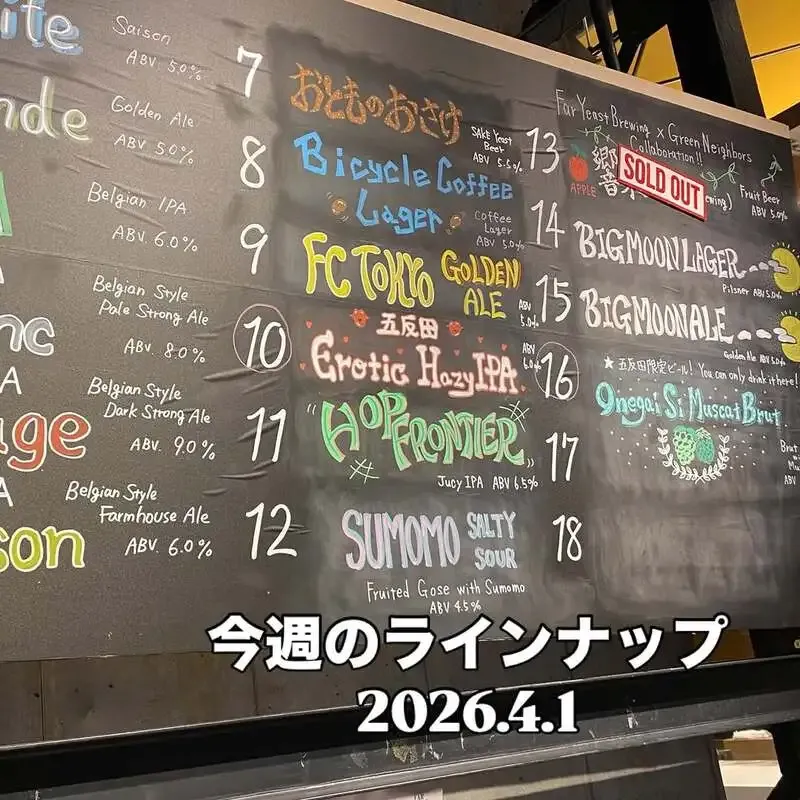 ite
Saison
ABV. 5.0%
nde
Golden Ale
ABV 5.0%
Belgian IPA
ABV. 6.0%
A
nc
Belgian Style
Pale Strong Ale
ABV. 8.0%
A
ge
Belgian Style
Dark Strong Ale
ABV. 9.0%
A
son
Belgian Style
Farmhouse Ale
ABV. 6.0%
7
おとものおさけ
SAKE Yeast
Beer
ABV 5.5%
8
Bicycle Coffee
Lager
Coffee
Lager
ABV 5.0%
9
FC TOKYO GOLDEN
ALE
ABV
5.0%
10
五反田
Erotic Hazy IPA
ABV
6.0%
11
"HOP FRONTIER"
Jucy IPA ABV 6.5%
12
SUMOMO SALTY
SOUR
Fruited Gose with Sumomo
ABV 4.5%
13
Far Yeast Brewing x Green Neighbors
Collaboration!!
APPLE
郷
音
SOLD OUT
wing)
Fruit Beer
ABV 5.0%
14
BIGMOON LAGER
Pilsner ABV 5.0%
15
BIGMOON ALE
Golden Ale ABV 5.0%
16
★五反田限定ビール! You can only drink it here!
Onegai Si Muscat Brut
Brut
Mu
ABV
17
18
今週のラインナップ
2026.4.1